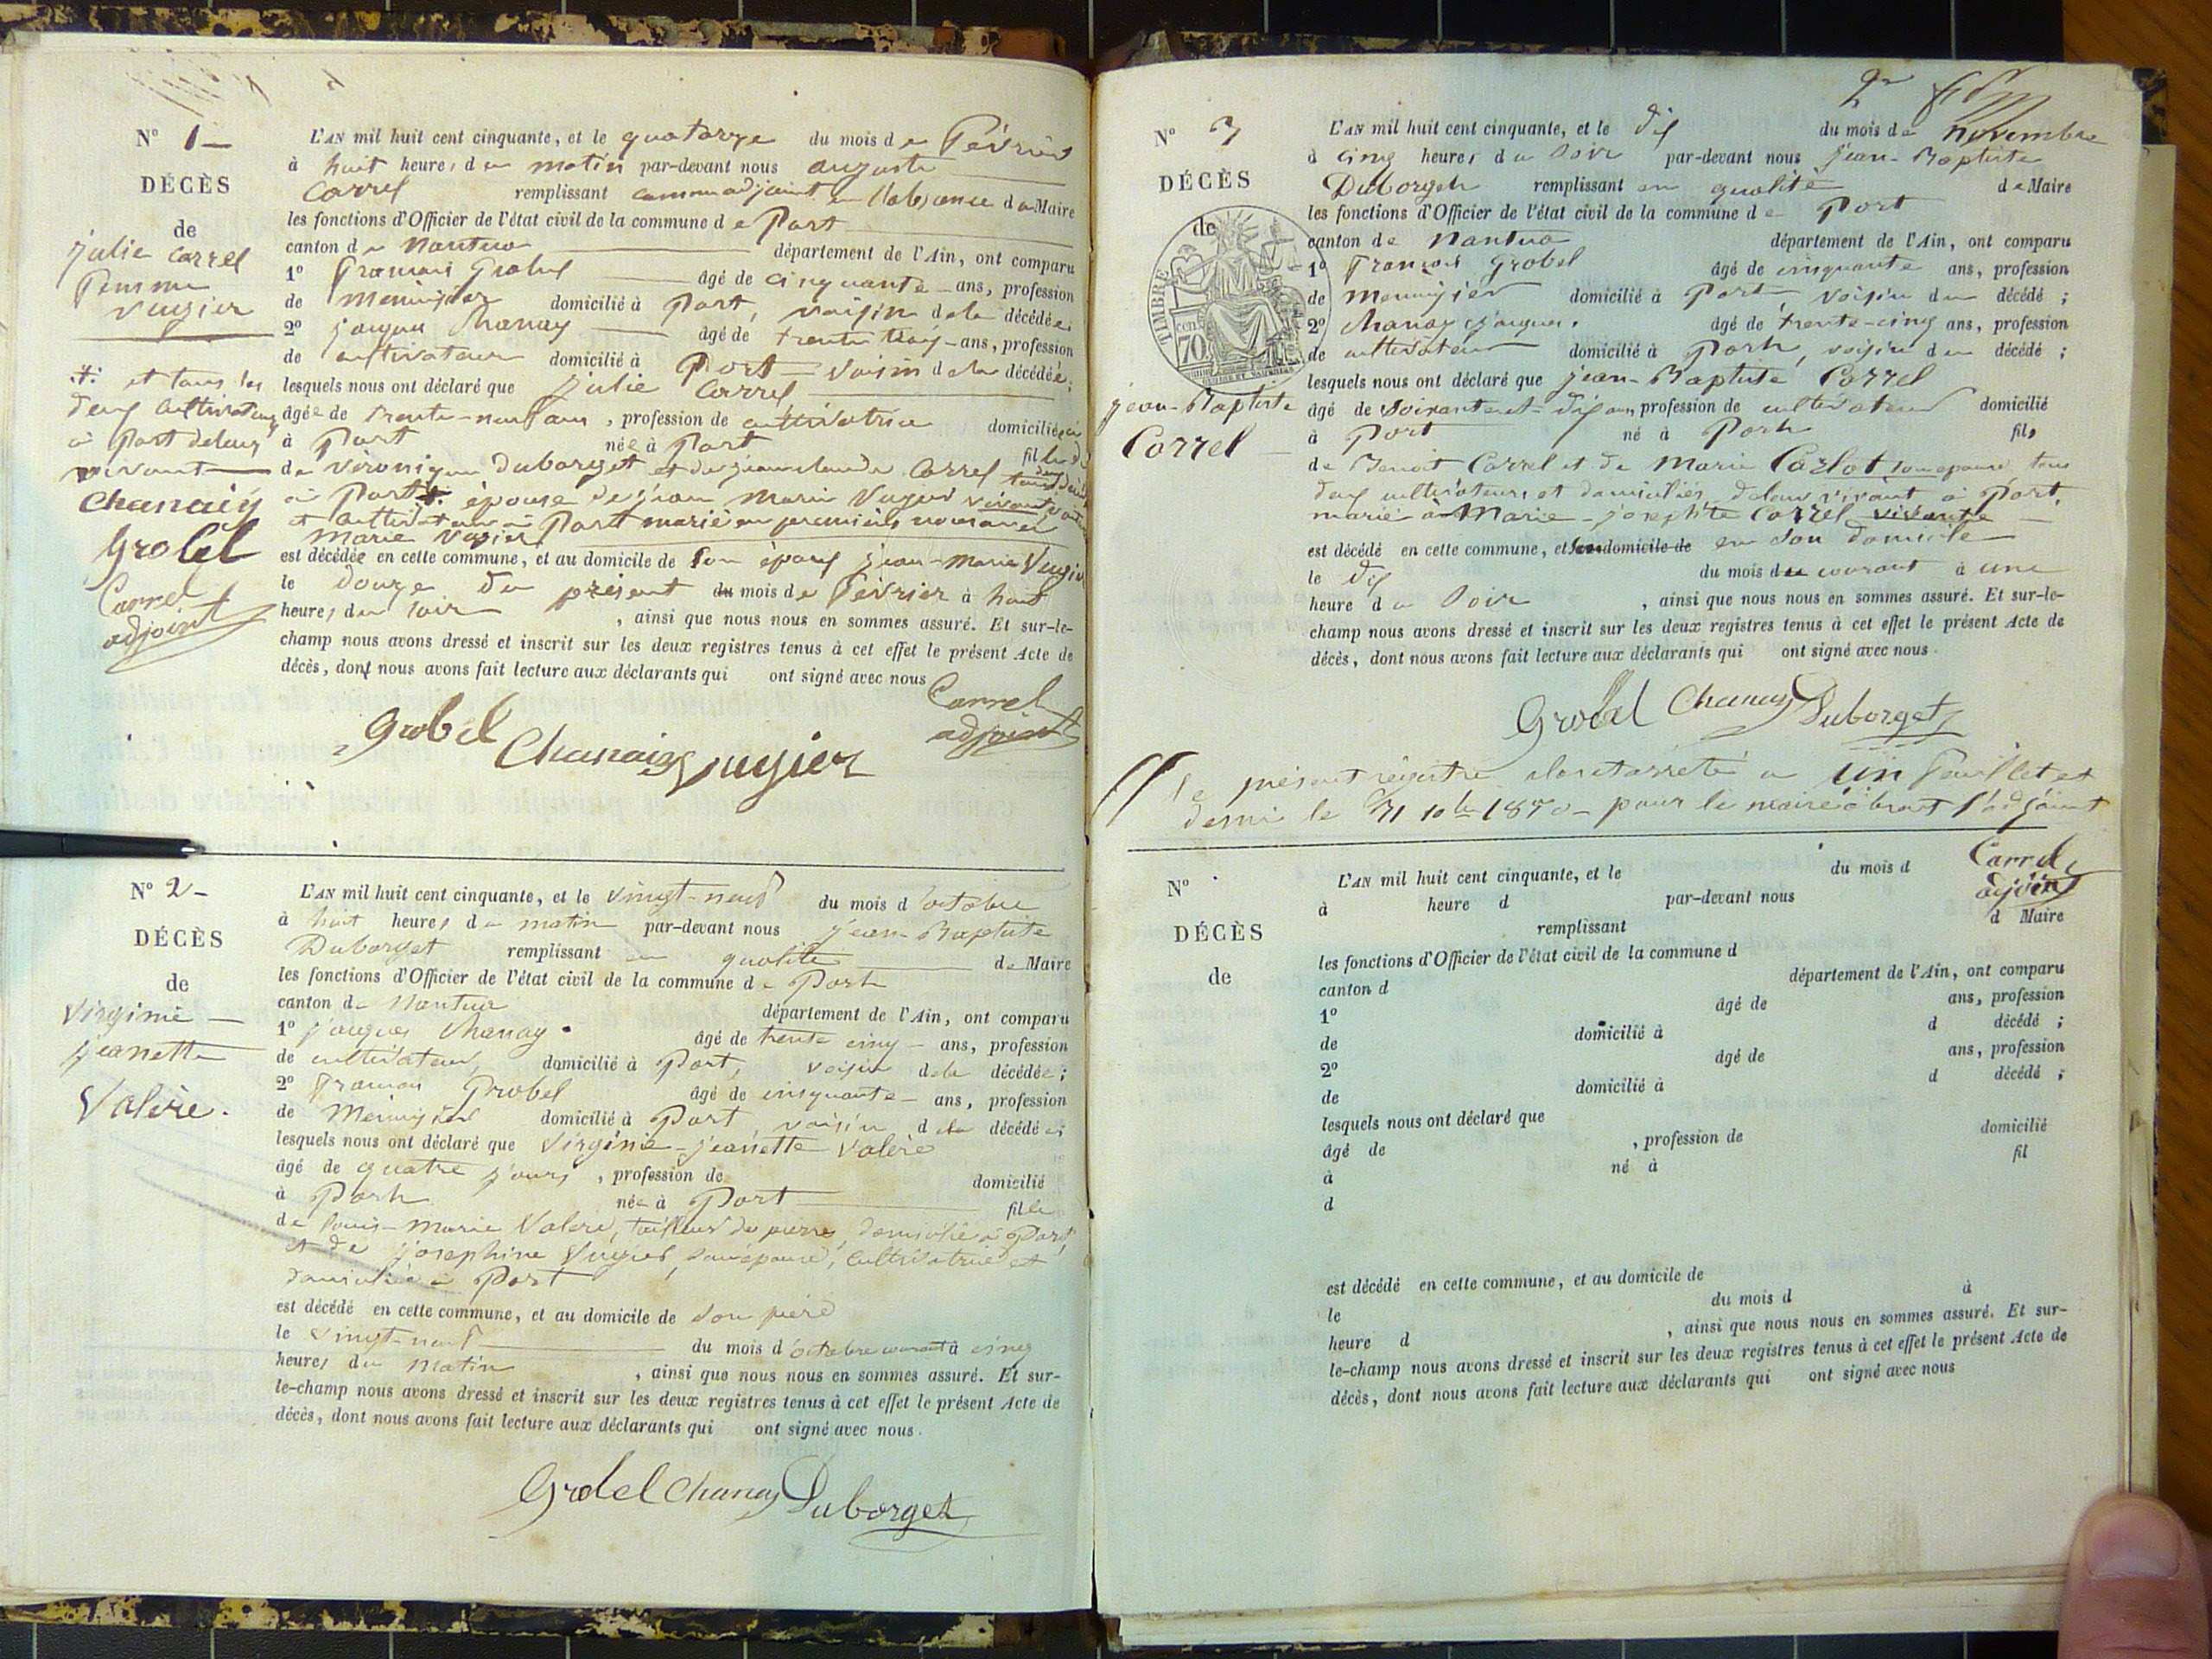 N° 1 —
DÉCÈS
de
julie Carrel
femme
vugier
.+. et tous les
deux cultivateurs
à Port de leur
vivant
Chanaiy
Grobel
Carrel
adjoint
L'AN mil huit cent cinquante, et le quatorze du mois de Février
à huit heures du matin par-devant nous auguste
Carrel remplissant comme adjoint en l'absence du Maire
les fonctions d'Officier de l'état civil de la commune de Port
canton de Nantua département de l'Ain, ont comparu
1° François Grobel âgé de cinquante ans, profession
de menuisier domicilié à Port, voisin de la décédée;
2° jacques Chanay âgé de trente trois ans, profession
de cultivateur domicilié à Port voisin de la décédée;
lesquels nous ont déclaré que julie Carrel
âgée de trente-neuf ans, profession de cultivatrice domiciliée
à Port née à Port fille
de véronique Duborget et de jean claude Carrel
à Port .+. épouse de jean Marie Vugier
et cultivateur à Port marié en premières noces avec
Marie Vugier
est décédée en cette commune, et au domicile de son époux jean-Marie Vugier
le douze du présent du mois de Février à huit
heures du soir, ainsi que nous nous en sommes assuré. Et sur-le-
champ nous avons dressé et inscrit sur les deux registres tenus à cet effet le présent Acte de
décès, dont nous avons fait lecture aux déclarants qui ont signé avec nous
Carrel
adjoint
Grobel
Chanaiy Vugier
N° 2 —
DÉCÈS
de
Virginie —
jeanette
Valère.
L'AN mil huit cent cinquante, et le vingt-neuf du mois d'octobre
à huit heures du matin par-devant nous jean-Baptiste
Duborget remplissant en qualité de Maire
les fonctions d'Officier de l'état civil de la commune de Port
canton de Nantua département de l'Ain, ont comparu
1° jacques Chanay. âgé de trente cinq ans, profession
de cultivateur, domicilié à Port, voisin de la décédée;
2° François Grobel âgé de cinquante ans, profession
de Menuisier domicilié à Port, voisin de la décédée;
lesquels nous ont déclaré que Virginie-jeanette Valère
âgé de quatre jours, profession de domicilié
à Port née à Port fille
de louis-marie Valère, tailleur de pierre, domicilié à Port,
et de josephine Vugier, son épouse, cultivatrice et
domiciliée à Port
est décédé en cette commune, et au domicile de son père
le vingt-neuf du mois d'octobre courant à cinq
heures du matin, ainsi que nous nous en sommes assuré. Et sur-
le-champ nous avons dressé et inscrit sur les deux registres tenus à cet effet le présent Acte de
décès, dont nous avons fait lecture aux déclarants qui ont signé avec nous.
Grobel Chanay Duborget
N° 3
DÉCÈS
de
TIMBRE
70
jean-Baptiste
Carrel —
L'AN mil huit cent cinquante, et le dix du mois de novembre
à cinq heures du Soir par-devant nous jean-Baptiste
Duborget remplissant en qualité de Maire
les fonctions d'Officier de l'état civil de la commune de Port
canton de Nantua département de l'Ain, ont comparu
1° François Grobel âgé de cinquante ans, profession
de menuisier domicilié à Port, voisin du décédé;
2° Chanay jacques. âgé de trente-cinq ans, profession
de cultivateur domicilié à Port, voisin du décédé;
lesquels nous ont déclaré que jean-Baptiste Carrel
âgé de Soixante et dix ans profession de cultivateur domicilié
à Port né à Port fils
de Benoit Carrel et de Marie Carlot son épouse tous
deux cultivateurs et domiciliés de leur vivant à Port,
marié à Marie-josephte Carrel vivante
est décédé en cette commune, et au domicile de en son domicile
le dix du mois du courant à une
heure du Soir, ainsi que nous nous en sommes assuré. Et sur-le-
champ nous avons dressé et inscrit sur les deux registres tenus à cet effet le présent Acte de
décès, dont nous avons fait lecture aux déclarants qui ont signé avec nous.
Grobel Chanay Duborget
le présent régistre clos et arreté a un feuillet et
demi le 31 10bre 1850 — pour le maire absent l'adjoint
Carrel
adjoint
N°
DÉCÈS
de
L'AN mil huit cent cinquante, et le du mois d
à heure d par-devant nous
remplissant d Maire
les fonctions d'Officier de l'état civil de la commune d
canton d département de l'Ain, ont comparu
1° âgé de ans, profession
de domicilié à d décédé;
2° âgé de ans, profession
de domicilié à d décédé;
lesquels nous ont déclaré que
âgé de , profession de domicilié
à né à fil
d
est décédé en cette commune, et au domicile de
le du mois d à
heure d , ainsi que nous nous en sommes assuré. Et sur-
le-champ nous avons dressé et inscrit sur les deux registres tenus à cet effet le présent Acte de
décès, dont nous avons fait lecture aux déclarants qui ont signé avec nous